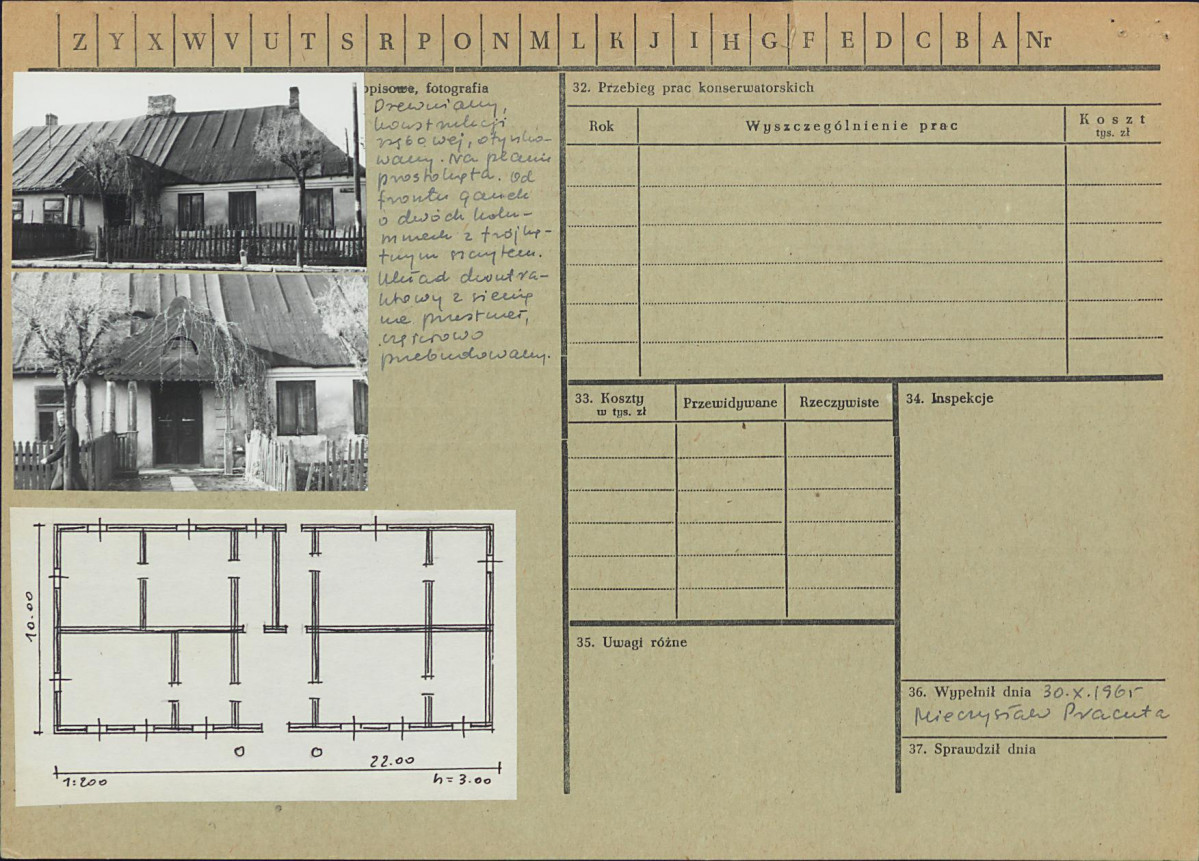 Z Y X W V U T S R P O N M L K J I H G F E D C B A Nr
opisowe, fotografia
Drewniany,
konstrukcji
zrębowej, otynko-
wany. Na planie
prostokąta. Od
frontu ganek
o dwóch kolu-
mnach z trójką-
tnym szczytem.
Układ dwutra-
ktowy z sienią
na przestrzał,
częściowo
przebudowany.
32. Przebieg prac konserwatorskich
Rok
Wyszczególnienie prac
Koszt
tys. zł
33. Koszty
w tys. zł
Przewidywane
Rzeczywiste
34. Inspekcje
35. Uwagi różne
36. Wypełnił dnia 30.X.1965
Mieczysław Pracuta
37. Sprawdził dnia
10.00
22.00
1:200
h=3.00